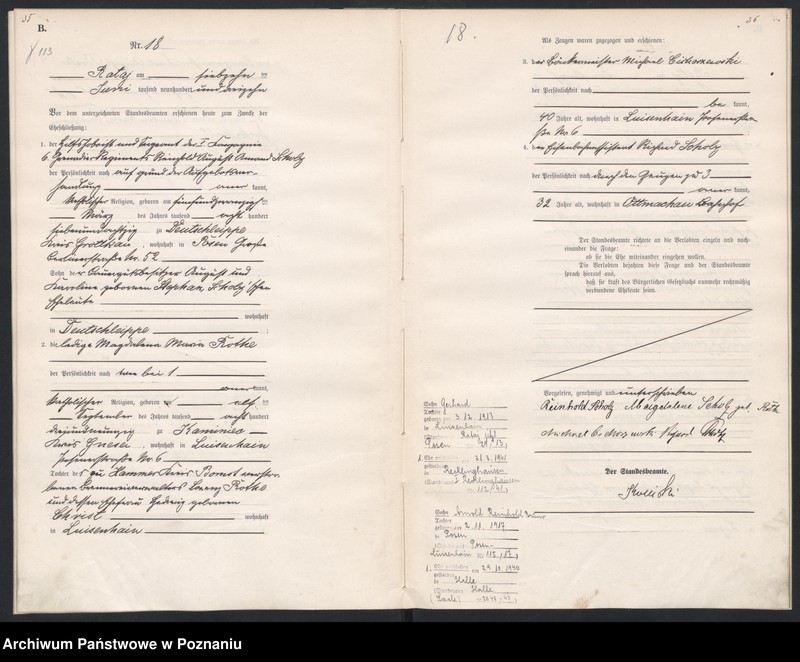 35
B.
Nr. 18
113
Rataj am siebzehn ten
Juni tausend neunhundert und dreizehn
Vor dem unterzeichneten Standesbeamten erschienen heute zum Zwecke der
Eheschließung:
1. der Hilfshoboist und Sergeant der I Kompagnie
6. Grenadier Regiments Reinhold August Amand Scholz
der Persönlichkeit nach auf Grund der Aufgebotsver-
handlung aner kannt,
katholischer Religion, geboren am fünfundzwanzig ten
März des Jahres tausend acht hundert
siebenundachtzig zu Deutschleippe
Kreis Grottkau, wohnhaft in Posen Große
Berlinerstraße Nr. 52
Sohn der August und
Karoline geborenen Stephan, Scholz'schen
Eheleute
wohnhaft
in Deutschleippe ;
2. die ledige Magdalena Maria Rothe
der Persönlichkeit nach wie bei 1
aner kannt,
katholischer Religion, geboren am elf ten
September des Jahres tausend acht hundert
dreiundneunzig zu Kaminiec
Kreis Gnesen, wohnhaft in Luisenhain
Posenerstraße Nr. 6
Tochter des zu Hammer Kreis Bomst verstor-
benen Lorenz Rothe
und dessen Ehefrau Hedwig geborenen
Christ wohnhaft
in Luisenhain
18.
36
Als Zeugen waren zugezogen und erschienen:
3. der Bäckermeister Michael Cichorzewski
der Persönlichkeit nach
be kannt,
40 Jahre alt, wohnhaft in Luisenhain Posenerstra-
ße Nr. 6
4. der Eisenbahnassistent Richard Scholz
der Persönlichkeit nach durch den Zeugen zu 3
aner kannt,
32 Jahre alt, wohnhaft in Ottmachau Bahnhof
Der Standesbeamte richtete an die Verlobten einzeln und nach-
einander die Frage:
ob sie die Ehe miteinander eingehen wollen.
Die Verlobten bejahten diese Frage und der Standesbeamte
sprach hierauf aus,
daß sie kraft des Bürgerlichen Gesetzbuchs nunmehr rechtmäßig
verbundene Eheleute seien.
Vorgelesen, genehmigt und unterschrieben
Reinhold Scholz Magdalene Scholz geb. Rothe
Michael Cichorzewski Richard Scholz
Der Standesbeamte.
Sohn Gerhard
Tochter
geboren am 3.12. 1913
in Luisenhain
Rataj jetzt
Posen Nr. 13
1. Ehe geschlossen 1941
Recklinghausen
Recklinghausen
Nr. 112/41
Sohn Arnold Reinhold
Tochter
geboren am 2.11. 1917
in Posen
Posen-
Luisenhain Nr. 112/17
1. am 24.10. 1944
in Halle
Halle
(Saale)
Archiwum Państwowe w Poznaniu